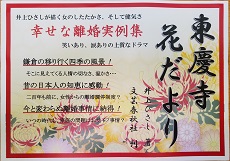 井上ひさしが描く女のしたたかさ、そして健気さ
幸せな離婚実例集
笑いあり、涙ありの上質なドラマ
鎌倉の移り行く四季の風景!
そこに見えてくる人情の切なさ、温かさ…
昔の日本人の知恵に感動!
今と変わらぬ離婚事情に納得!
東慶寺
花だより
井上ひさし 著
文芸春秋社 刊